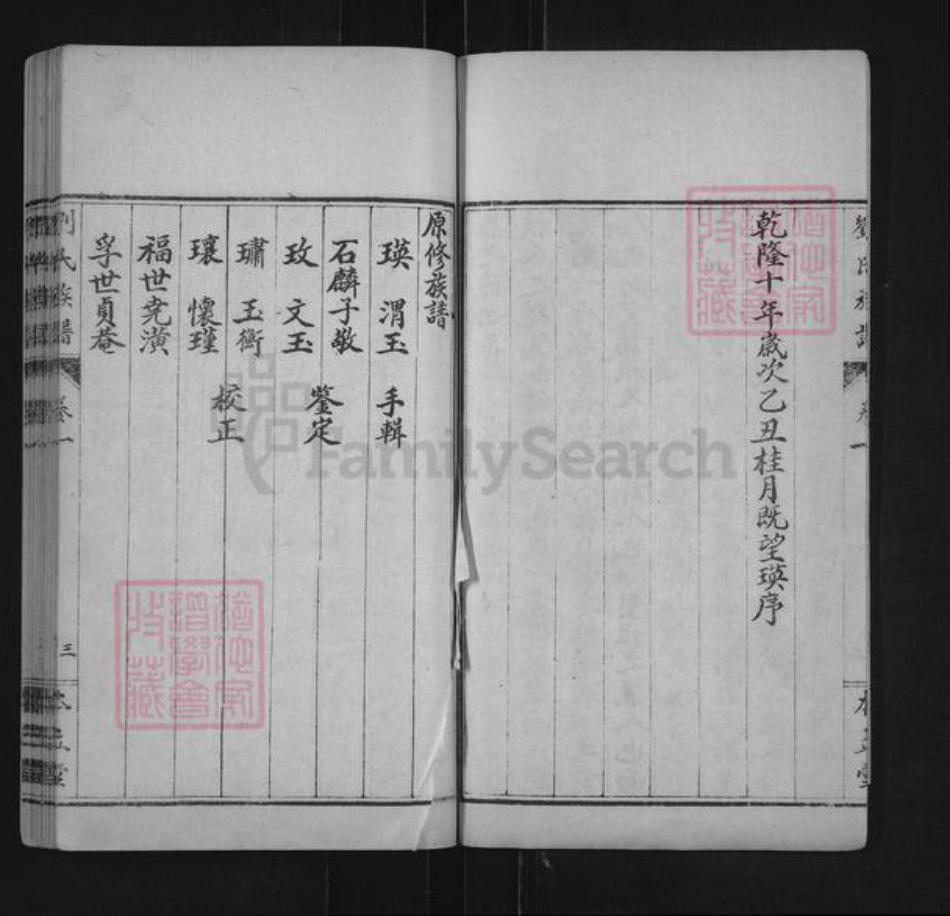 乾隆十年歲次乙丑桂月既望瑛序
原修族譜
瑛 渭玉 手輯
石麟子敬
玫 文玉 鑒定
璛 玉衡
瓌 懷瑾 校正
福世堯潢
孚世貞菴
劉氏族譜 卷一 三
FamilySearch